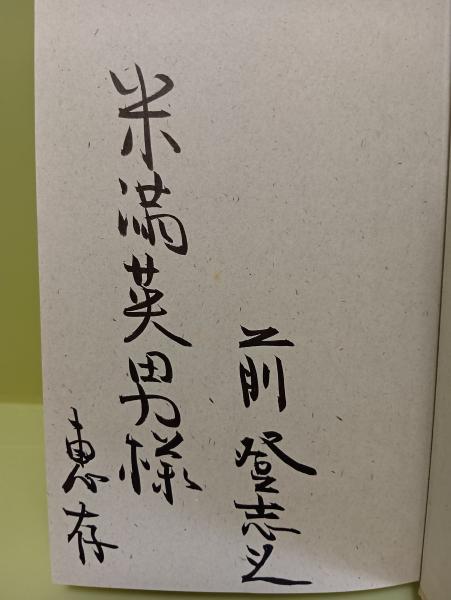 前登志夫
米満英男様
恵存